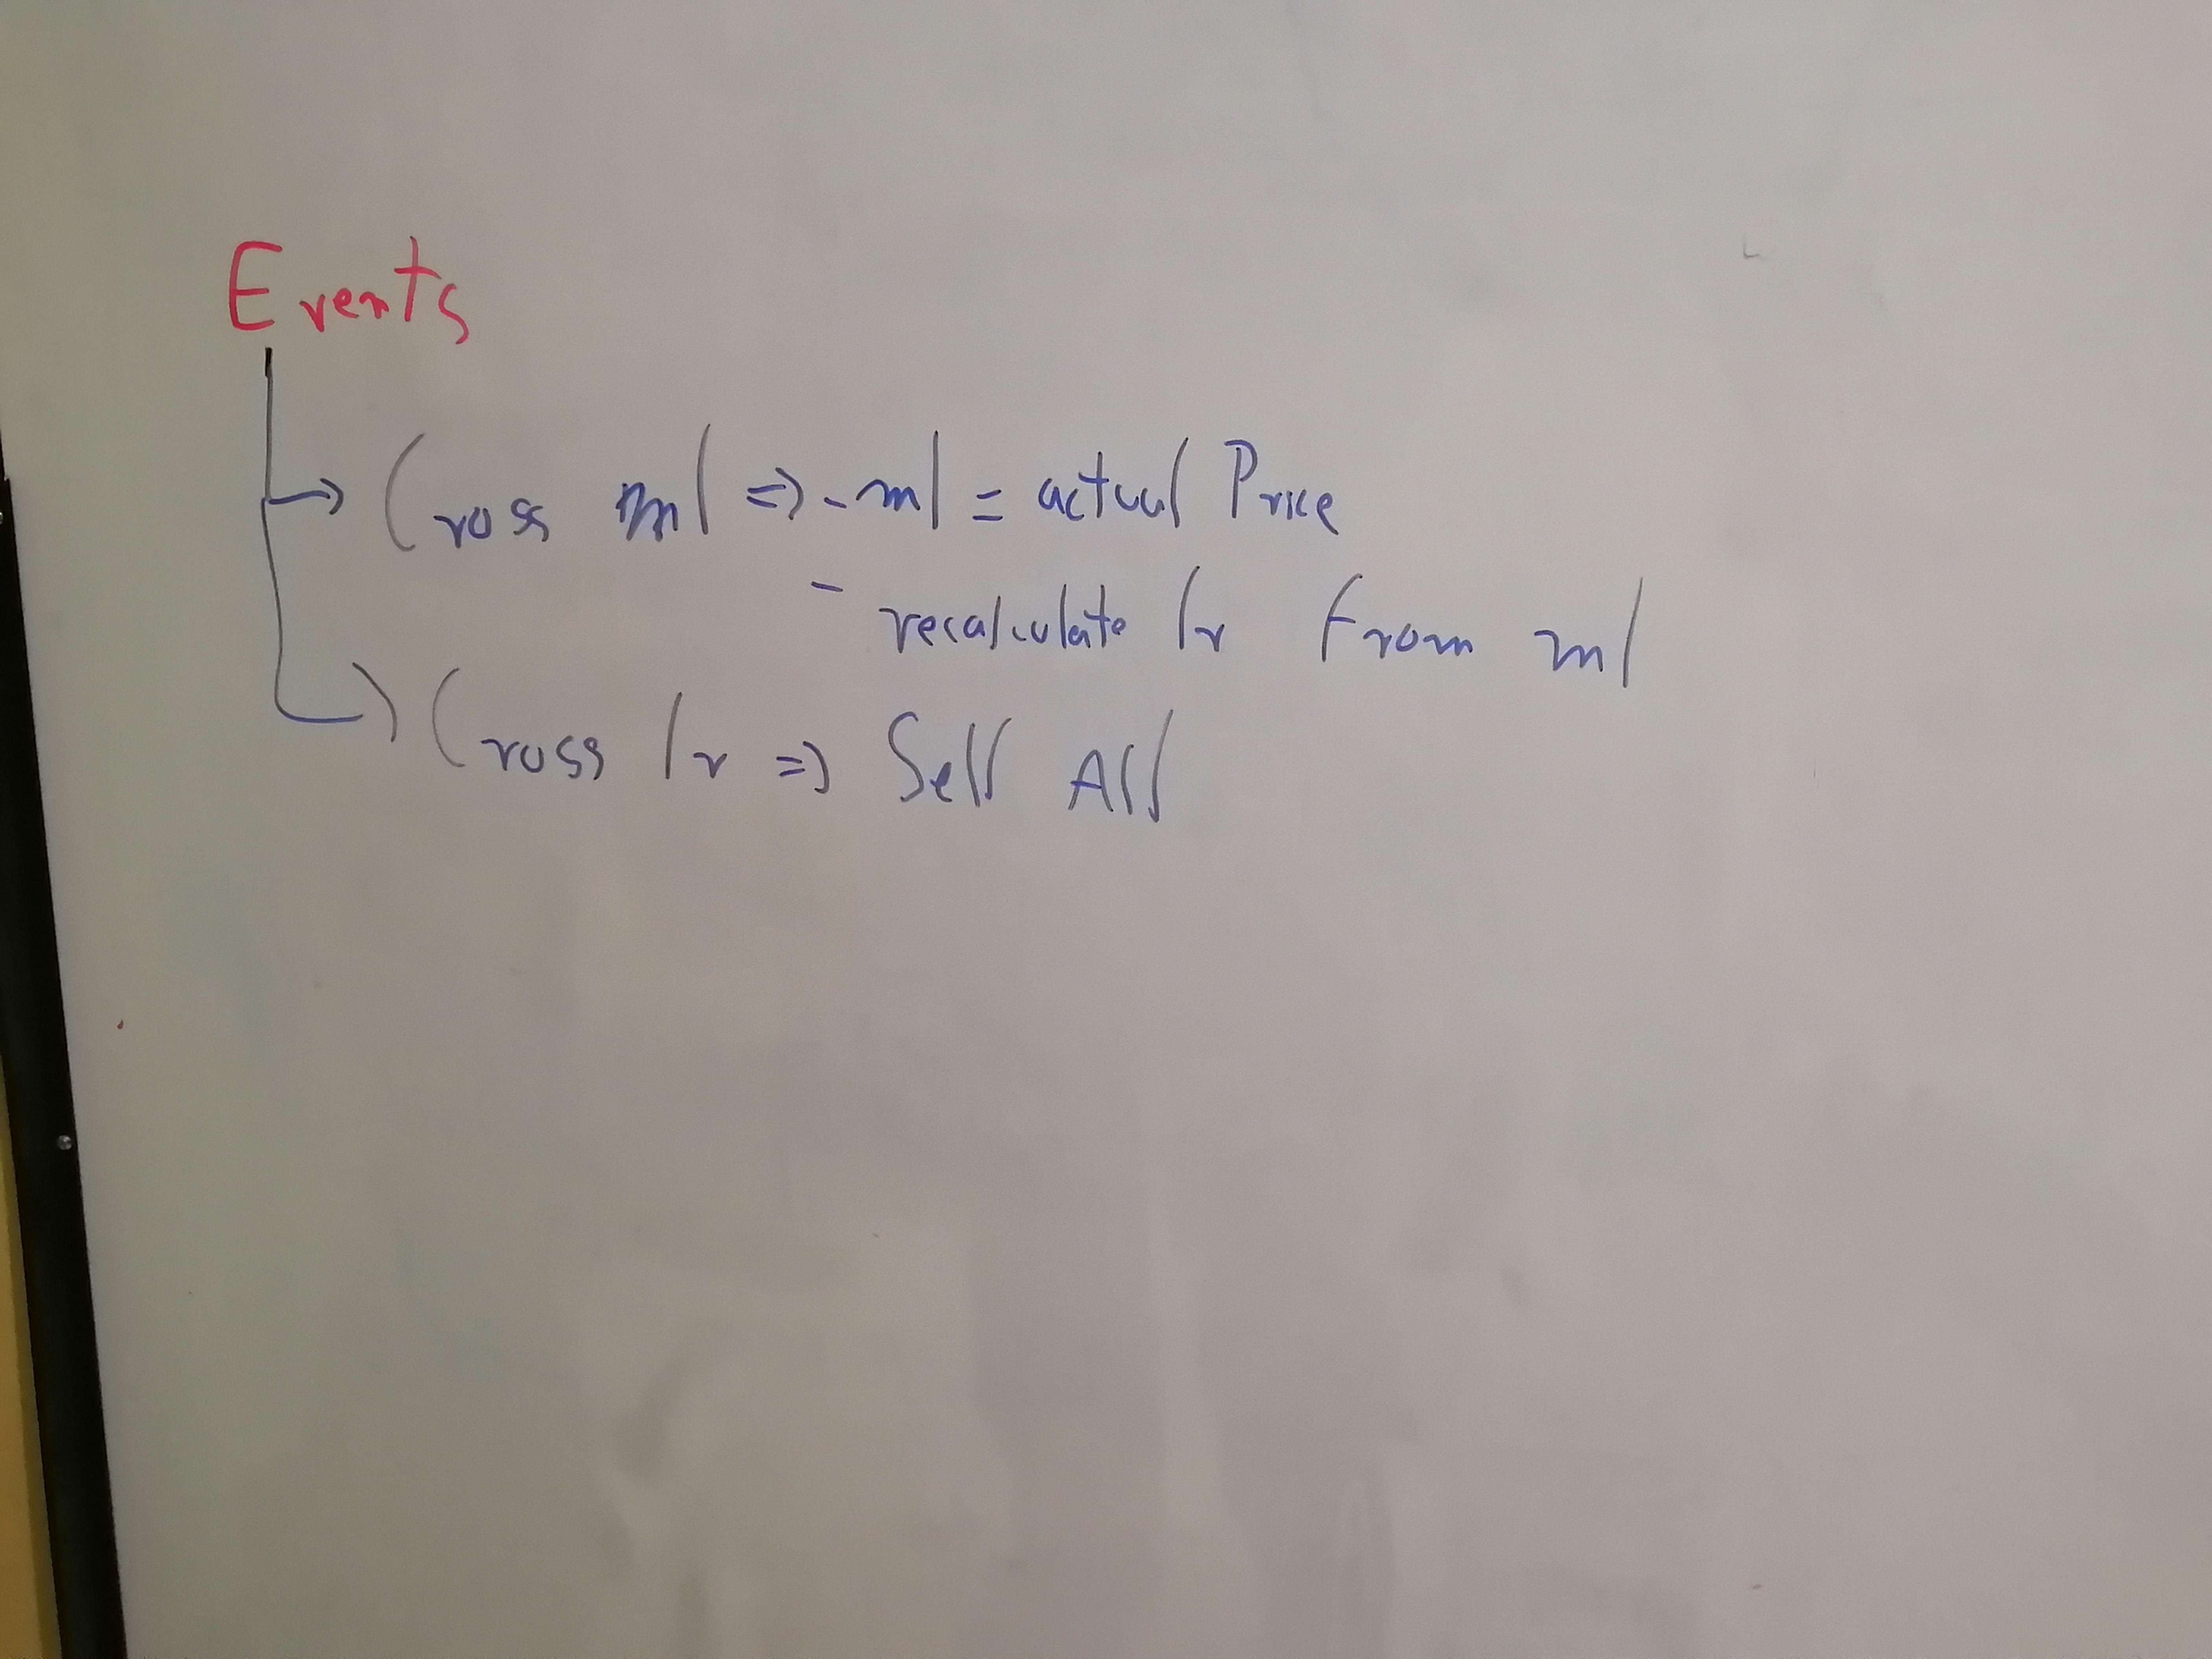 Events
→ Cross ml => - ml = actual Price
- recalculate lr from ml
→ Cross lr => Sell All